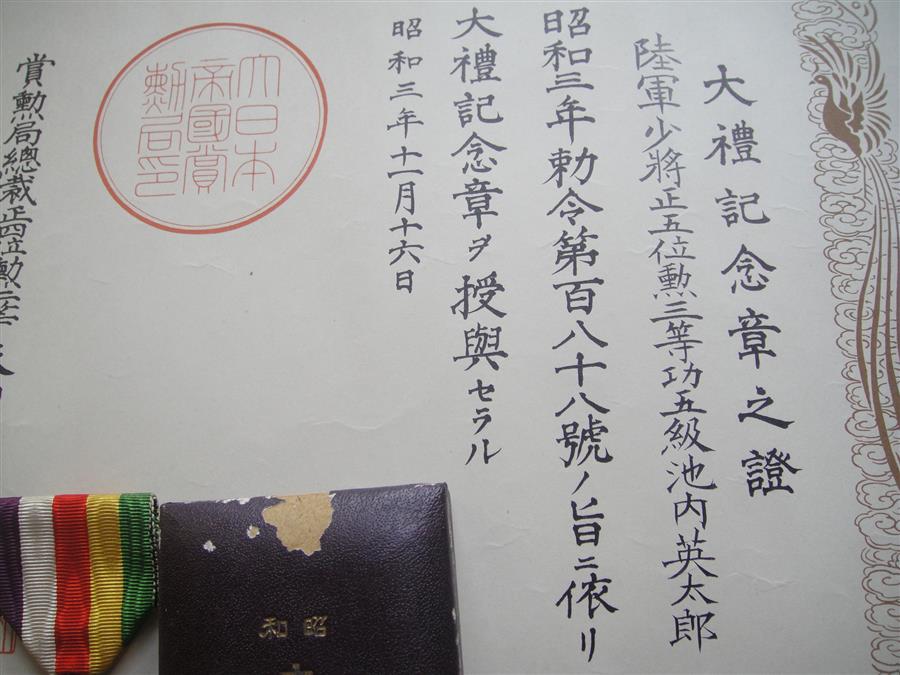 大禮記念章之證
陸軍少將正五位勲三等功五級池内英太郎
昭和三年勅令第百八十八號ノ旨ニ依リ
大禮記念章ヲ授與セラル
昭和三年十一月十六日
大日本
帝國賞
勲局印
賞勲局總裁正四位勲二等
昭和